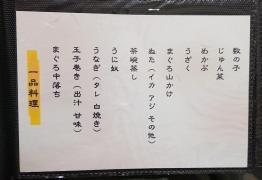 数の子
じゅん菜
めかぶ
うざく
まぐろ山かけ
ぬた（イカ アジ その他）
茶碗蒸し
うに奴
うなぎ（タレ 白焼き）
玉子巻き（出汁 甘味）
まぐろ中落ち
一品料理